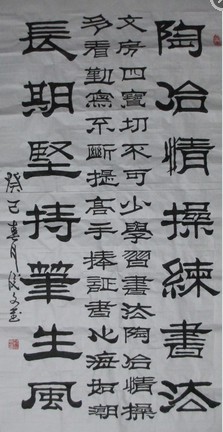 陶冶情操練書法
文房四寶切不可少學習書法陶冶情操
多看勤寫不斷提高手捧証書心海如潮
長期堅持筆生風
癸巳春月